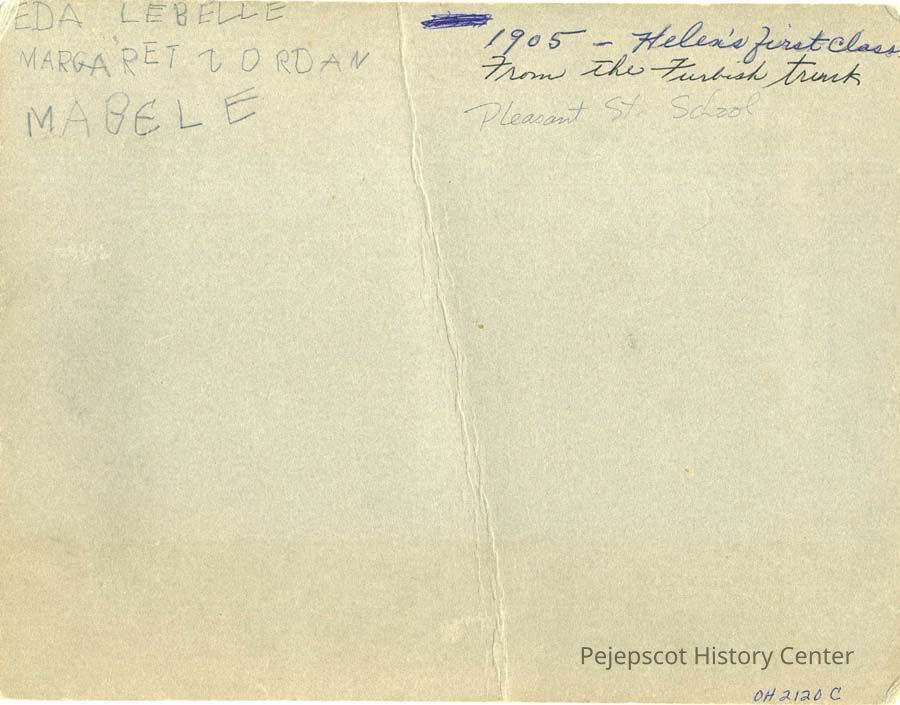 EDA LEBELLE
MARGARET JORDAN
MABELE
1905 - Helen's first class
From the Furbish trunk
Pleasant St. School
Pejepscot History Center
OH 2120 C